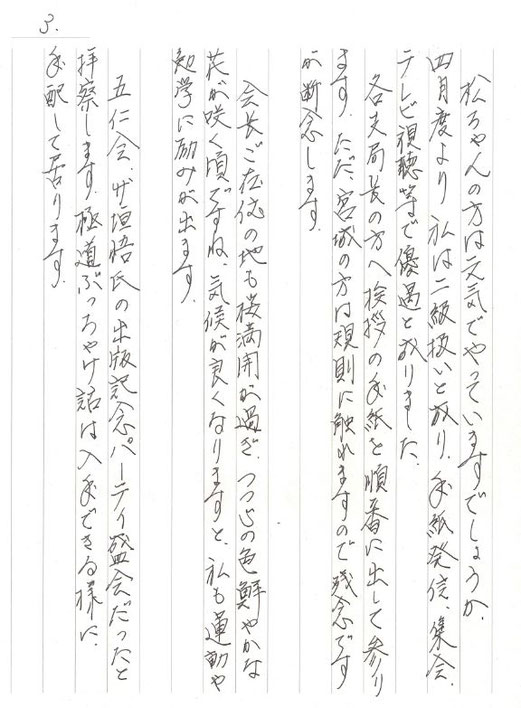 3.
松ちゃんの方は元気でやっていますでしょうか。
四月度より 私は二級扱いと成り、手紙発信、集会、
テレビ視聴等で優遇と成りました。
各支局長の方へ挨拶の手紙を順番に出して参り
ます。ただ、宮城の方は規則に触れますので残念です
が断念します。
会長ご在住の地も桜満開が過ぎ、つつじの色鮮やかな
花が咲く頃ですね、気候が良くなりますと、私も運動や
勉学に励みが出ます。
五仁会、竹垣悟氏の出版記念パーティ盛会だったと
拝察します。極道ぶっちゃけ話は入手できる様に、
手配して居ります。